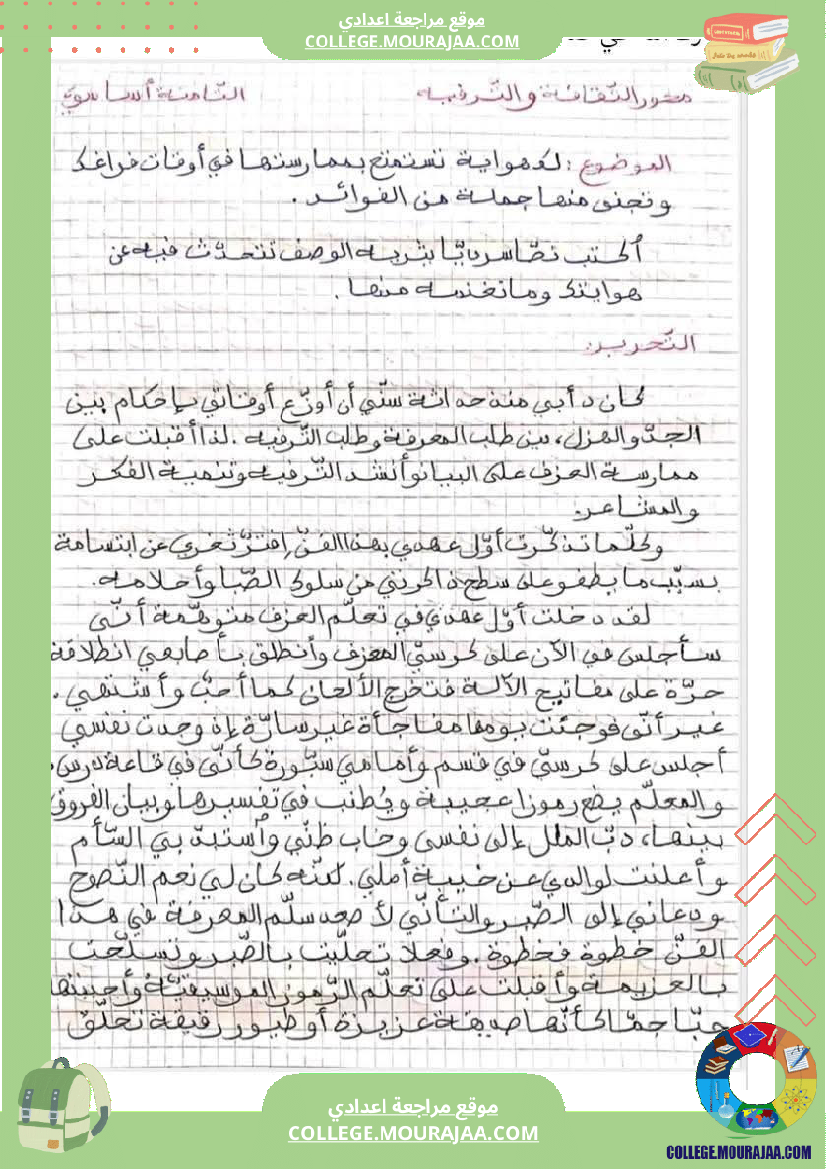 موقع مراجعة اعدادي
COLLEGE.MOURAJAA.COM
محور الثّقافة والتّرفيه
الثّامنة أساسي
الموضوع : لك هواية تستمتع بممارستها في أوقات فراغك
وتجني منها جملة من الفوائد .
أكتب نصّا سرديّا يثريه الوصف تتحدّث فيه عن
هوايتك وما تغنمه منها .
التّحرير:
كان دأبي منذ حداثة سنّي أن أوزّع أوقاتي بإحكام بين
الجدّ والهزل، بين طلب المعرفة وطلب التّرفيه . لذا أقبلت على
ممارسة العزف على البيانو أنشد التّرفيه وتنمية الفكر
والمشاعر.
وكلّما تذكّرت أوّل عهدي بهذا الفنّ اِفترّ ثغري عن ابتسامة
بسبب ما يطفو على سطح ذاكرتي من سلوك الصّبا وأحلامه.
لقد دخلت أوّل عهدي في تعلّم العزف متوهّمة أنّي
سأجلس في الآن على كرسيّ المعزف وأنطلق بأصابعي انطلاقة
حرّة على مفاتيح الآلة فتخرج الألحان كما أحبّ وأشتهي .
غير أنّي فوجئت يومها مفاجأة غير سارّة إذ وجدت نفسي
أجلس على كرسيّ في قسم وأمامي سبّورة كأنّي في قاعة درس،
والمعلّم يضع رموزا عجيبة ويُطنب في تفسيرها وبيان الفروق
بينها، دبّ الملل إلى نفسي وخاب ظنّي وٱستبدّ بي السّأم
وأعلنت لوالدي عن خيبة أملي. لكنّه كان لي نعم النّصوح
ودعاني إلى الصّبر والتأنّي لأصعد سلّم المعرفة في هذا
الفنّ خطوة فخطوة . وفعلا تحلّيت بالصّبر وتسلّحت
بالعزيمة وأقبلت على تعلّم الرّموز الموسيقيّة وأحببتها
حبّا جمّا كأنّها صديقة عزيزة أو طيور رقيقة تحلّق
موقع مراجعة اعدادي
COLLEGE.MOURAJAA.COM
COLLEGE.MOURAJAA.COM